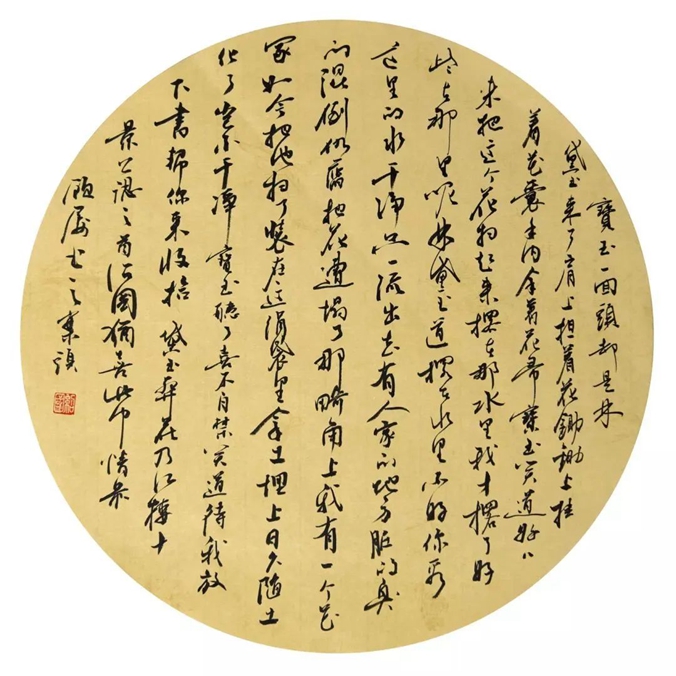 寶玉一面頭却是林
黛玉来了肩上担着花鋤鋤上挂
着花囊手内拿着花帚寶玉笑道好好
来把这个花扫起来撂在那水里我才撂了好
些在那里呢林黛玉道撂在水里不好你看
这里的水干净只一流出去有人家的地方脏的臭
的混倒仍舊把花遭塌了那畸角上我有一个花
冢如今把他扫了装在这绢袋里拿土埋上日久随土
化了岂不干净寶玉聽了喜不自禁笑道待我放
下書帮你来收拾 黛玉葬花乃江樓十
景 之 喜此 情景